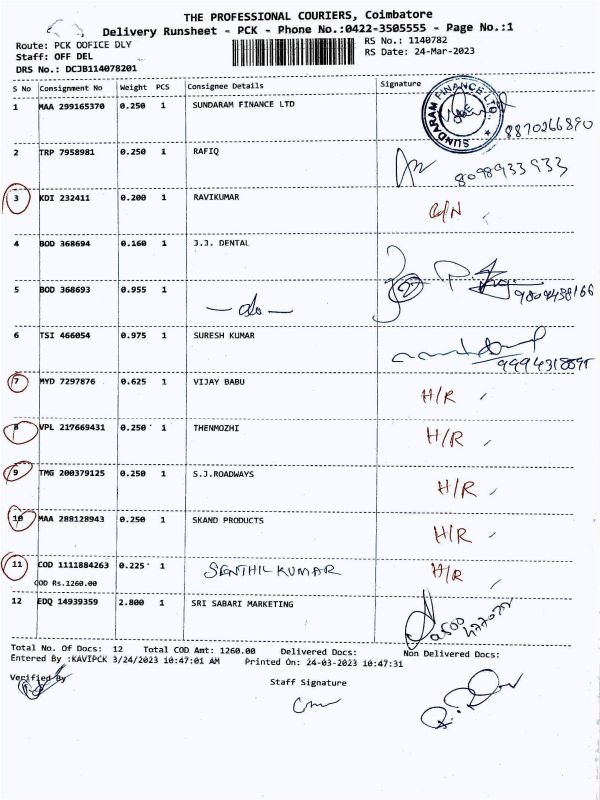 THE PROFESSIONAL COURIERS, Coimbatore
Delivery Runsheet - PCK - Phone No.:0422-3505555 - Page No.:1
Route: PCK OOFICE DLY
RS No.: 1140782
Staff: OFF DEL
RS Date: 24-Mar-2023
DRS No.: DCJB114078201
S No Consignment No Weight PCS Consignee Details Signature
1 MAA 299165370 0.250 1 SUNDARAM FINANCE LTD
SUNDARAM FINANCE LTD.
8870266890
2 TRP 7958981 0.250 1 RAFIQ
8098933933
3 KDI 232411 0.200 1 RAVIKUMAR
4 BOD 368694 0.160 1 J.J. DENTAL
5 BOD 368693 0.955 1 - do -
6 TSI 466054 0.975 1 SURESH KUMAR
7 MYD 7297876 0.625 1 VIJAY BABU H/R
8 VPL 217669431 0.250 1 THENMOZHI H/R
9 TMG 200379125 0.250 1 S.J.ROADWAYS H/R
10 MAA 288128943 0.250 1 SKAND PRODUCTS H/R
11 COD 1111884263 0.225 1 SENTHIL KUMAR H/R
COD Rs.1260.00
12 EDQ 14939359 2.800 1 SRI SABARI MARKETING
Total No. Of Docs: 12 Total COD Amt: 1260.00 Delivered Docs: Non Delivered Docs:
Entered By :KAVIPCK 3/24/2023 10:47:01 AM Printed On: 24-03-2023 10:47:31
Verified By
Staff Signature